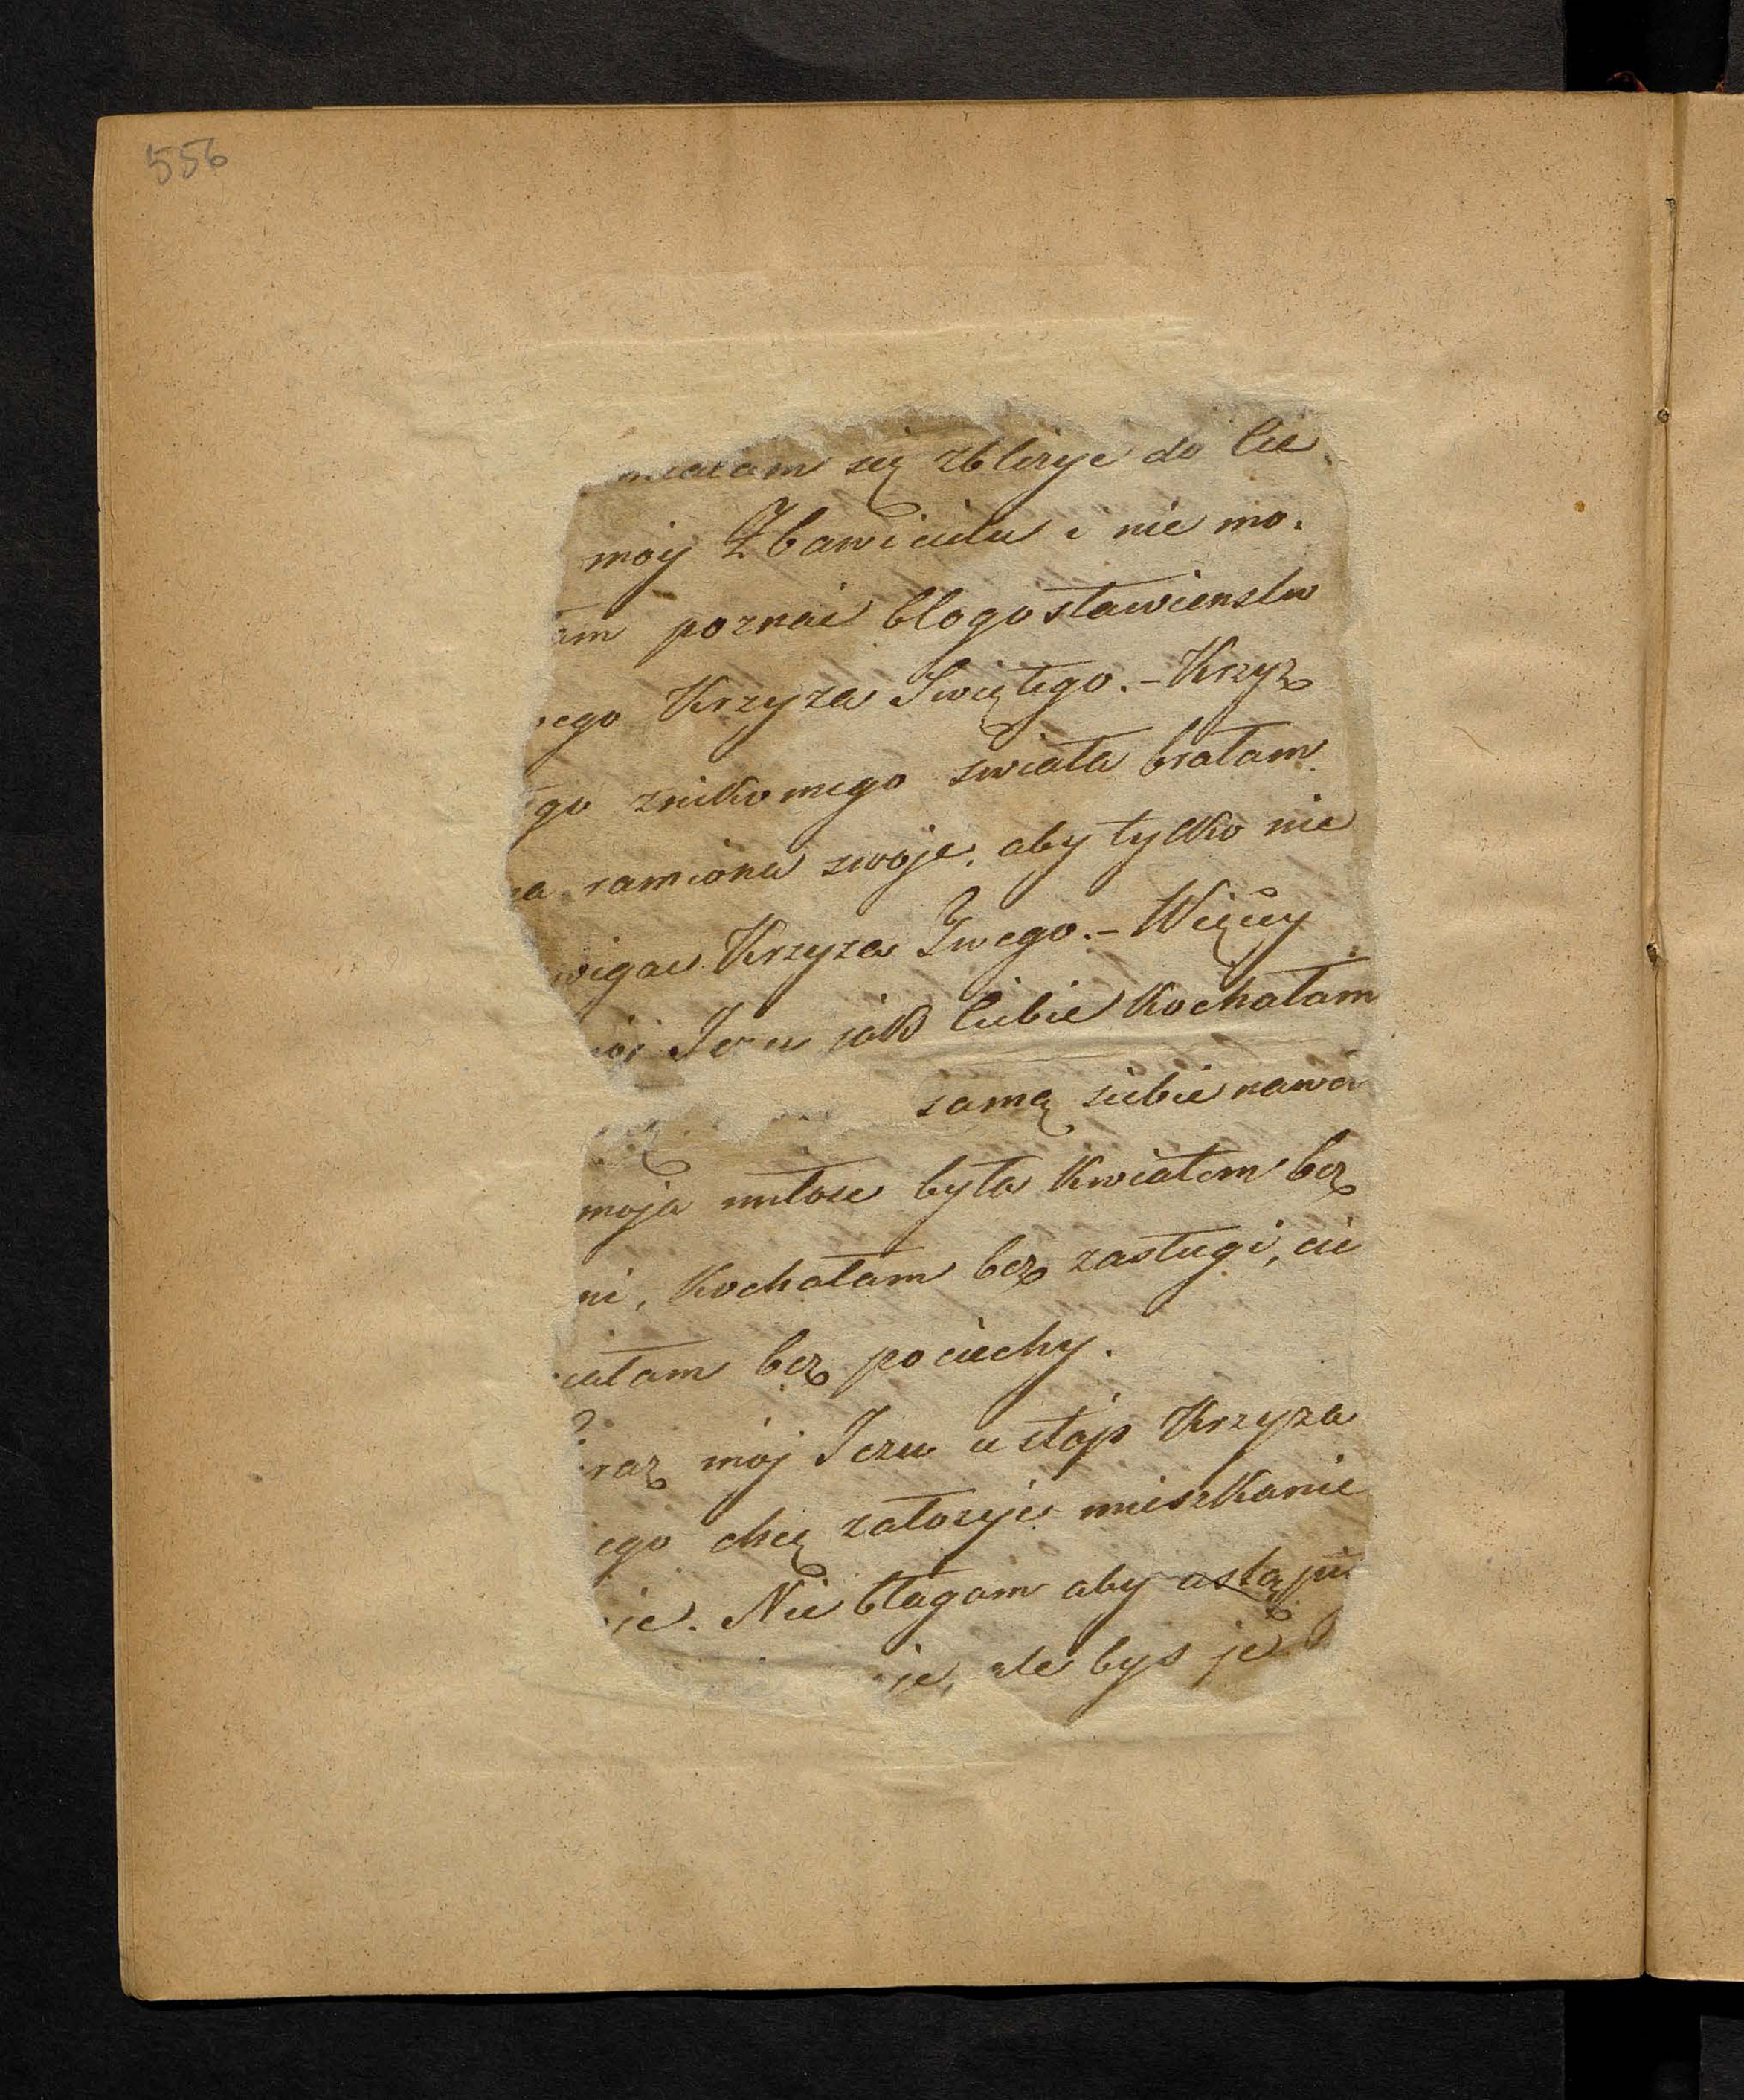 556
się zblizyc do Cie
moy Zbawicielu i nie mo.
am poznac blogosławienstw
ego Krzyza Swiętego. – Krzyz
go znikomego swiata brałam
a ramiona swoje, aby tylko nie
wigac Krzyza Twego. – Więcej
Jezu jak Ciebie kochałam
samą siebie nawa
moja miłosc była kwiatem bez
ni, kochałam bez zasługi, cie
iałam bez pociechy.
raz mój Jezu u stóp Krzyza
ego chcę załozyc mieszkanie
je. Nie błagam aby ustąpic
je, ale bys je